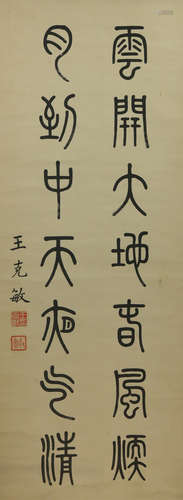 雲開大地春風煖
月到中天夜氣清
王克敏